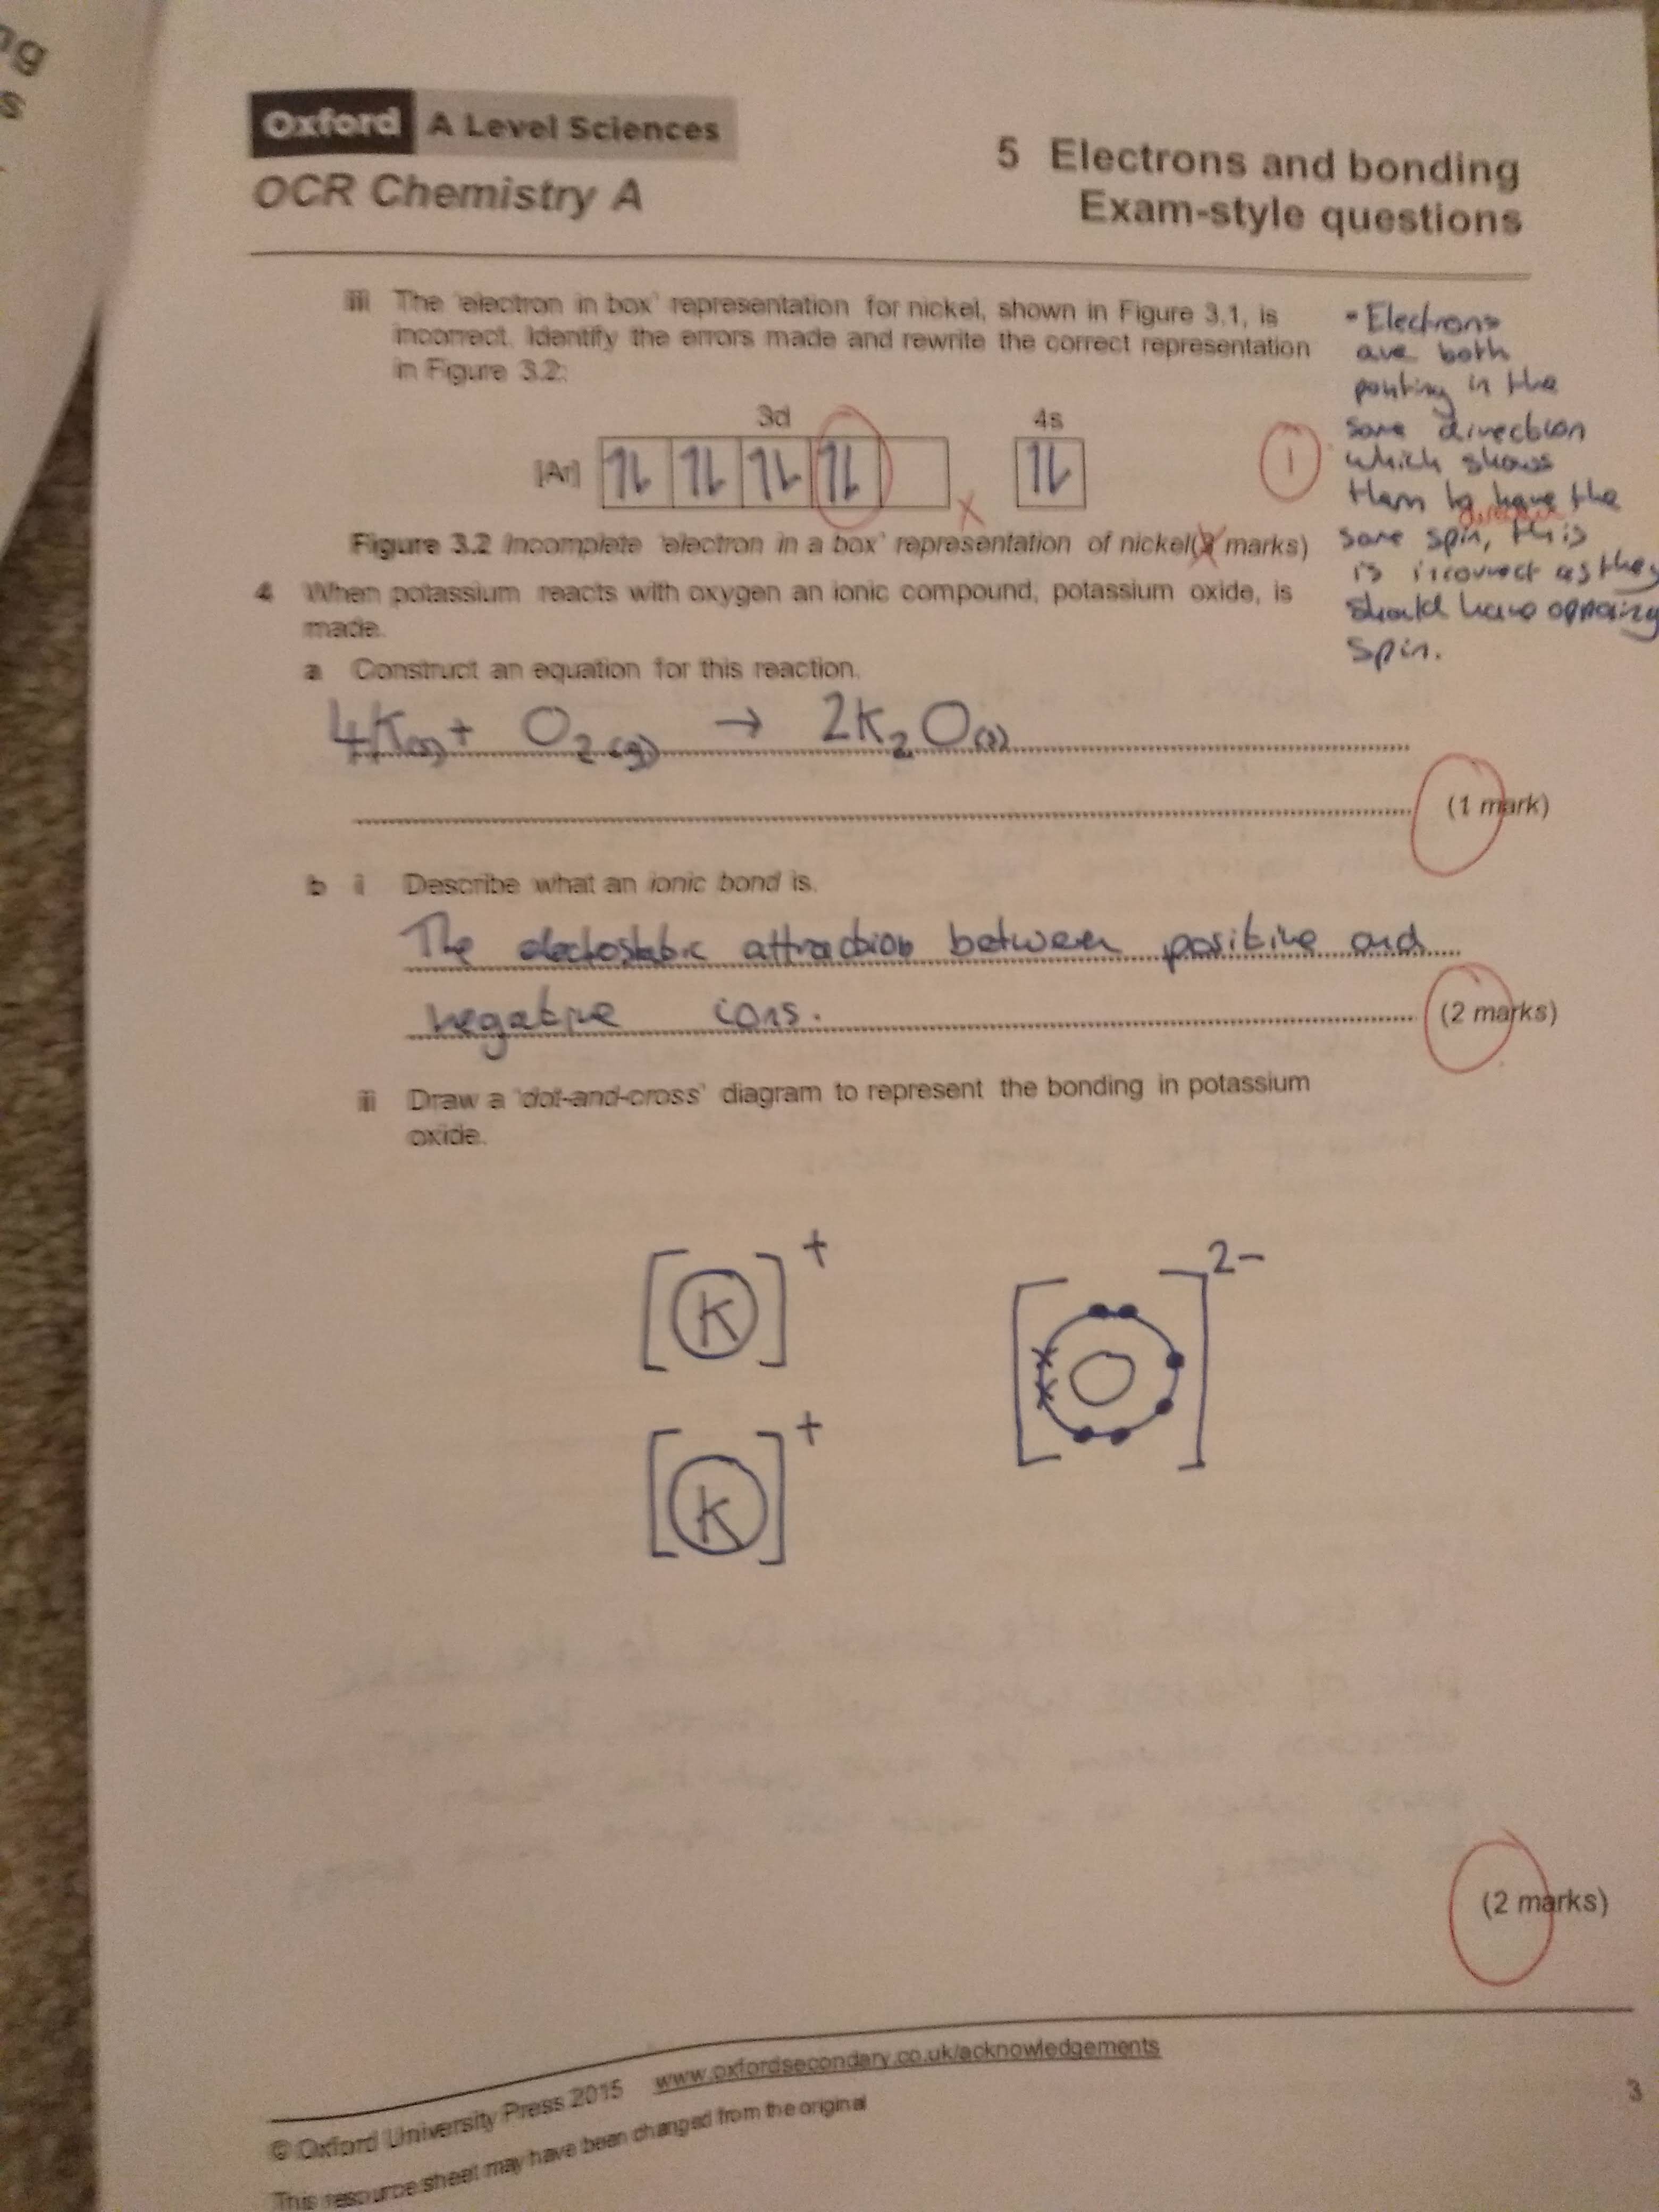 ng
s
Oxford A Level Sciences
OCR Chemistry A
5 Electrons and bonding
Exam-style questions
iii The 'electron in box' representation for nickel, shown in Figure 3.1, is
incorrect. Identify the errors made and rewrite the correct representation
in Figure 3.2:
3d 4s
[Ar] 1
Figure 3.2 Incomplete 'electron in a box' representation of nickel( marks)
• Electrons
are both
ponting in the
same direction
which shows
them to have the
same spin, this
is incorrect as they
should have opposing
spin.
4 When potassium reacts with oxygen an ionic compound, potassium oxide, is
made.
a Construct an equation for this reaction.
4K(s) + O2(g) → 2K2O(s)
(1 mark)
b i Describe what an ionic bond is.
The electostatic attraction between positive and
negative ions.
(2 marks)
ii Draw a 'dot-and-cross' diagram to represent the bonding in potassium
oxide.
[K]+
[O]2-
[K]+
(2 marks)
© Oxford University Press 2015 www.oxfordsecondary.co.uk/acknowledgements
This resource sheet may have been changed from the original
3